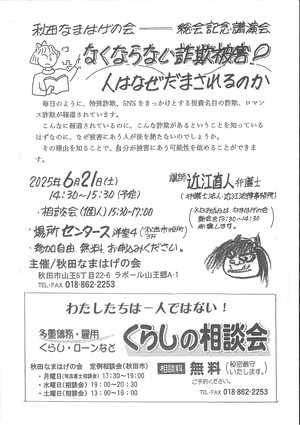 秋田なまはげの会 ― 総会記念講演会
なくならない詐欺被害?
人はなぜだまされるのか
毎日のように、特殊詐欺、SNSをきっかけとする投資名目の詐欺、ロマン
ス詐欺が報道されています。
こんなに報道されているのに、こんな詐欺があるということを知っている
はずなのに、なぜ被害にあう人が後を絶たないのでしょうか。
その理由を知ることで、自分が被害にあう可能性を低めることができま
す。
2025年6月21日(土)
14:30~15:30(予定)
・相談会(個人)15:30~17:00
・場所 センタース 洋室4
・参加自由、無料、お申込みください。
講師 近江直人 弁護士
(弁護士法人 近江法律事務所)
主催/秋田なまはげの会
秋田市山王6丁目22-6 ラポール山王郷A-1
TEL・FAX 018-862-2253
わたしたちは一人ではない!
多重債務・雇用
くらし・ローンなど
くらしの相談会
秋田なまはげの会 定例相談会(秋田市)
・月曜日(司法書士相談会) 17:30~19:00
・水曜日(相談会) 19:00~20:30
・土曜日(相談会) 13:00~16:00
相談料 無料 (秘密厳守いたします。)
ご予約ください。
TEL・FAX
018-862-2253